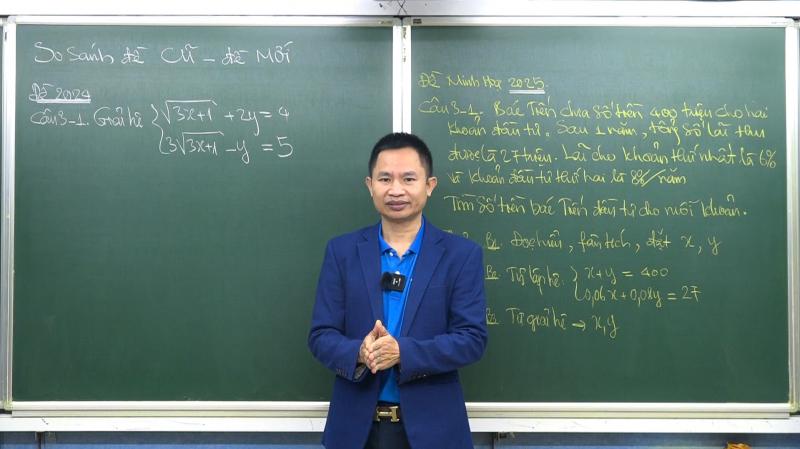 So sánh đề CŨ – đề MỚI
Đề 2024
Câu 3-1. Giải hệ { √3x+1 + 2y = 4
3√3x+1 - y = 5
Đề Minh Hoạ 2025.
Câu 3-1. Bác Tiến chia số tiền 400 triệu cho hai
khoản đầu tư. Sau 1 năm, tổng số lãi thu
được là 27 triệu. Lãi cho khoản thứ nhất là 6%
và khoản đầu tư thứ hai là 8%/năm
Tìm số tiền bác Tiến đầu tư cho mỗi khoản.
Đọc hiểu, phân tích, đặt x, y
Tự lập hệ: { x+y = 400
0,06x + 0,08y = 27
Tự giải hệ → x, y